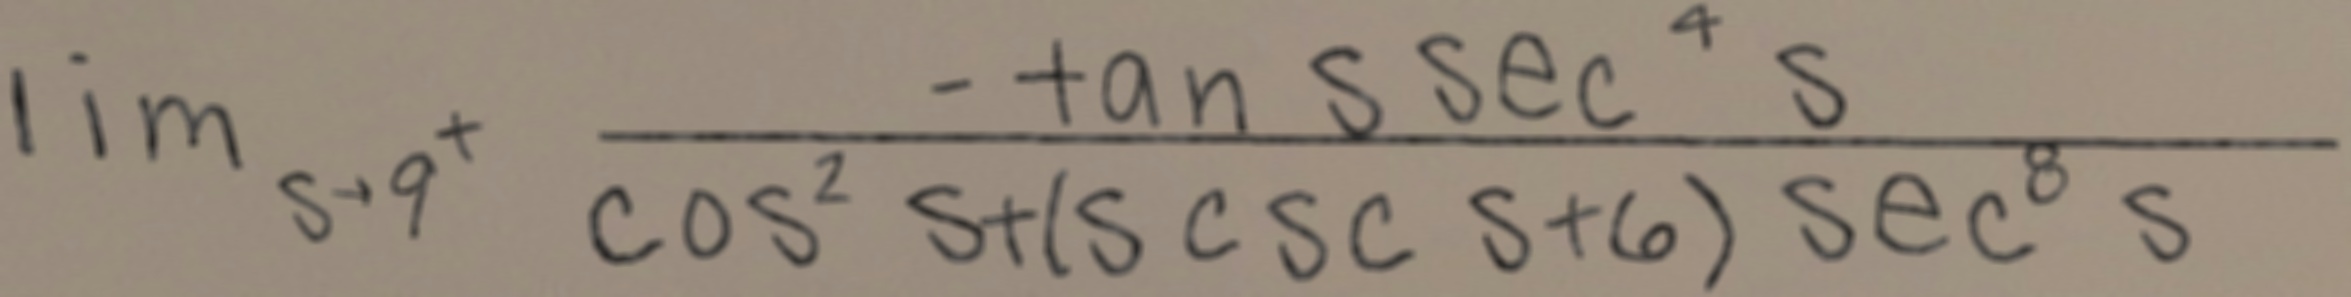 \lim_{s \to 9^+} \frac{-\tan s \sec^4 s}{\cos^2 s + (s \csc s + 6) \sec^8 s}